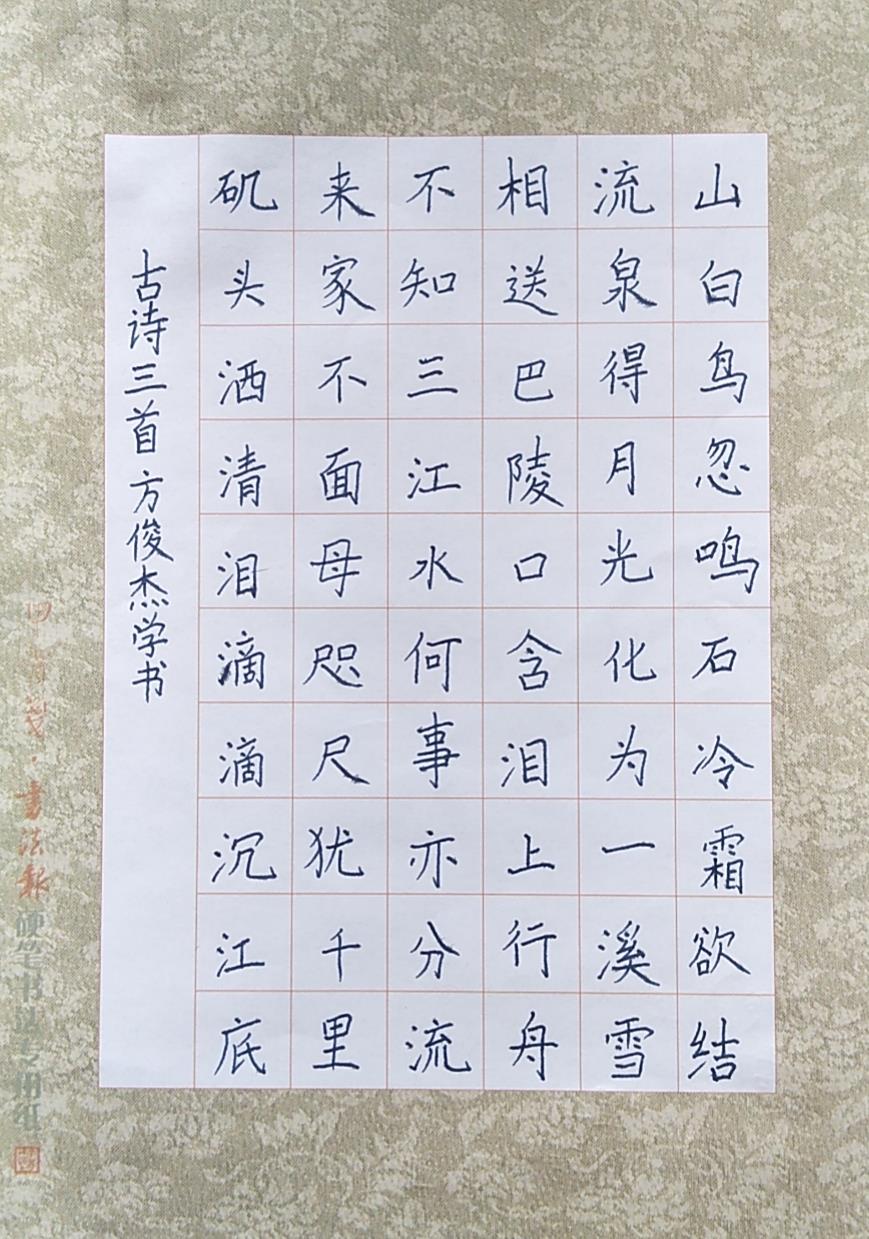 山白鸟忽鸣石冷霜欲结
流泉得月光化为一溪雪
相送巴陵口含泪上行舟
不知三江水何事亦分流
来家不面母咫尺犹千里
矶头洒清泪滴滴沉江底
古诗三首方俊杰学书
书法报硬笔书法专用纸